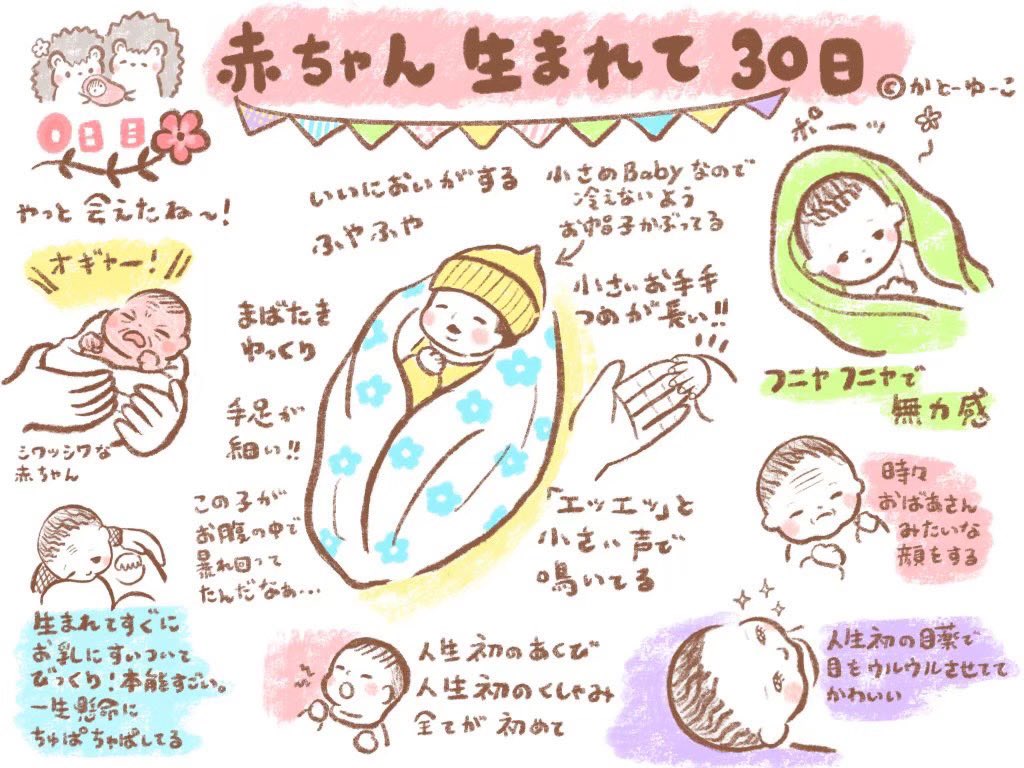 赤ちゃん 生まれて 30日
©かとーゆーこ
0日目
やっと 会えたね〜!
オギャー!
シワッシワな
赤ちゃん
生まれてすぐに
お乳にすいついて
びっくり!本能すごい。
一生懸命に
ちゅぱちゃぱしてる
いいにおいがする
ふやふや
まばたき
ゆっくり
手足が
細い!!
この子が
お腹の中で
暴れ回って
たんだなぁ…
小さめBabyなので
冷えないよう
お帽子かぶってる
小さいお手手
つめが長い!!
「エッエッ」と
小さい声で
鳴いてる
人生初のあくび
人生初のくしゃみ
全てが初めて
ポーッ
フニャフニャで
無力感
時々
おばあさん
みたいな
顔をする
人生初の目薬で
目をウルウルさせてて
かわいい